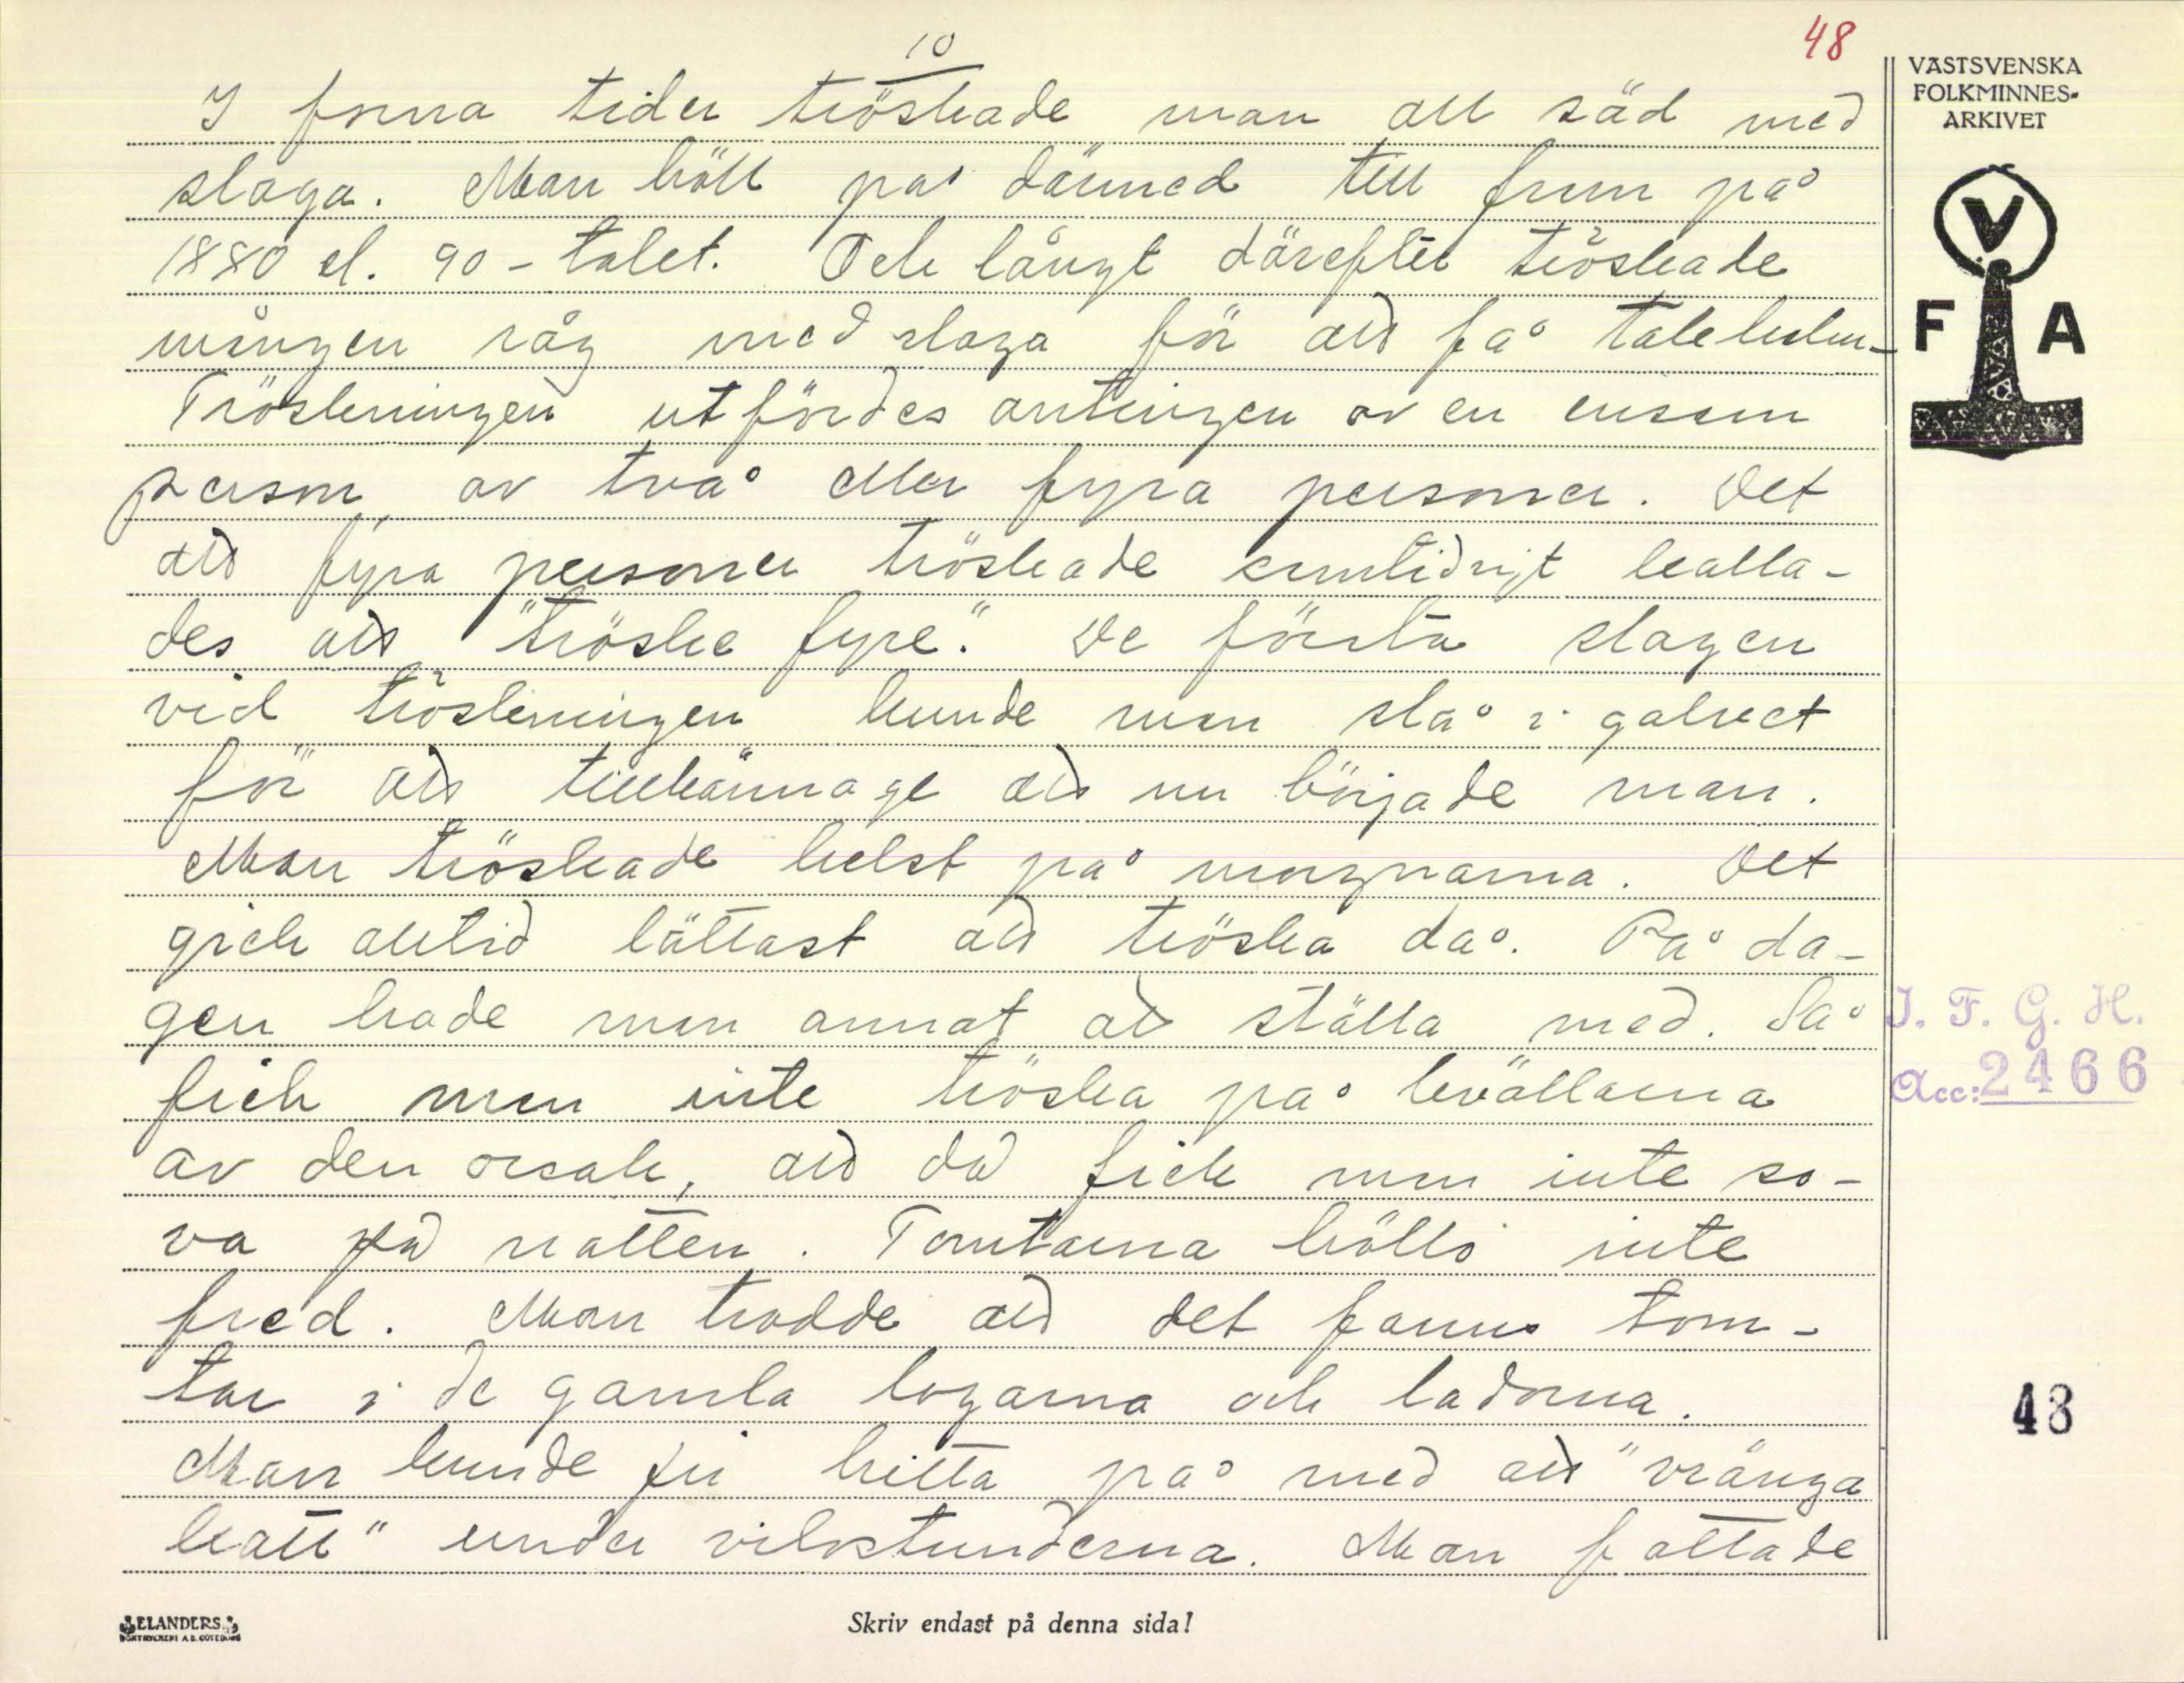 10
48
I forna tider tröskade man all säd med
slaga. Man höll på därmed till fram på
1880 el. 90-talet. Och långt därefter tröskade
mången råg med slaga för att få takhalm.
Tröskningen utfördes antingen av en ensam
person, av två eller fyra personer. Det
att fyra personer tröskade samtidigt kalla-
des att "tröske fyre." De första slagen
vid tröskningen kunde man slå i golvet
för att tillkännage att nu började man.
Man tröskade helst på morgnarna. Det
gick alltid lättast att tröska då. På da-
gen hade man annat att ställa med. Så
fick man inte tröska på kvällarna
av den orsak, att då fick man inte so-
va på natten. Tomtarna höllo inte
fred. Man trodde att det fanns tom-
tar i de gamla logarna och ladorna.
Man kunde hitta på med att "vränga
katt" under vilostunderna. Man fattade
VÄSTSVENSKA
FOLKMINNES-
ARKIVET
V
F A
I. F. G. H.
Acc: 2466
48
ELANDERS
BOKTRYCKERI A.B. GÖTEBORG
Skriv endast på denna sida!